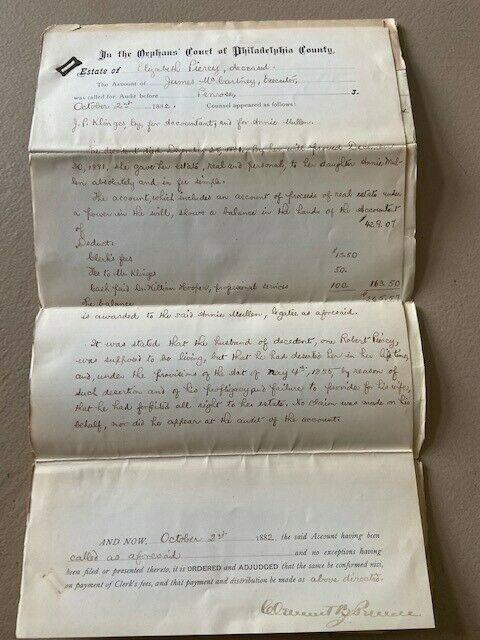 In the Orphans' Court of Philadelphia County.
Estate of Elizabeth Piercy, deceased.
The Account of James McCartney, Executor,
was called for Audit before Penrose, J.
October 2nd 1882. Counsel appeared as follows:
J. P. Klinges, Esq. for Accountant, and for Annie Mullen.
decedent died 1881. By her will proved December
30, 1881, she gave her estate, real and personal, to her daughter Annie Mul-
len absolutely and in fee simple.
The account, which includes an account of proceeds of real estate under
a power in the will, shows a balance in the hands of the Accountant
of $429.07
Deduct:
Clerk's fees $13.50
Fee to Mr. Klinges 50.
Cash paid Dr. William Hooper, professional services 100. 163.50
The balance $265.57
is awarded to the said Annie Mullen, legatee as aforesaid.
It was stated that the husband of decedent, one Robert Piercy,
was supposed to be living, but that he had deserted her in her lifetime,
and, under the provisions of the Act of May 4th, 1855, by reason of
such desertion and of his profligacy and failure to provide for his wife,
that he had forfeited all right to her estate. No claim was made on his
behalf, nor did he appear at the audit of the account.
AND NOW, October 2nd 1882, the said Account having been
called as aforesaid and no exceptions having
been filed or presented thereto, it is ORDERED and ADJUDGED that the same be confirmed nisi,
on payment of Clerk's fees, and that payment and distribution be made as above directed.
Clement B. Penrose